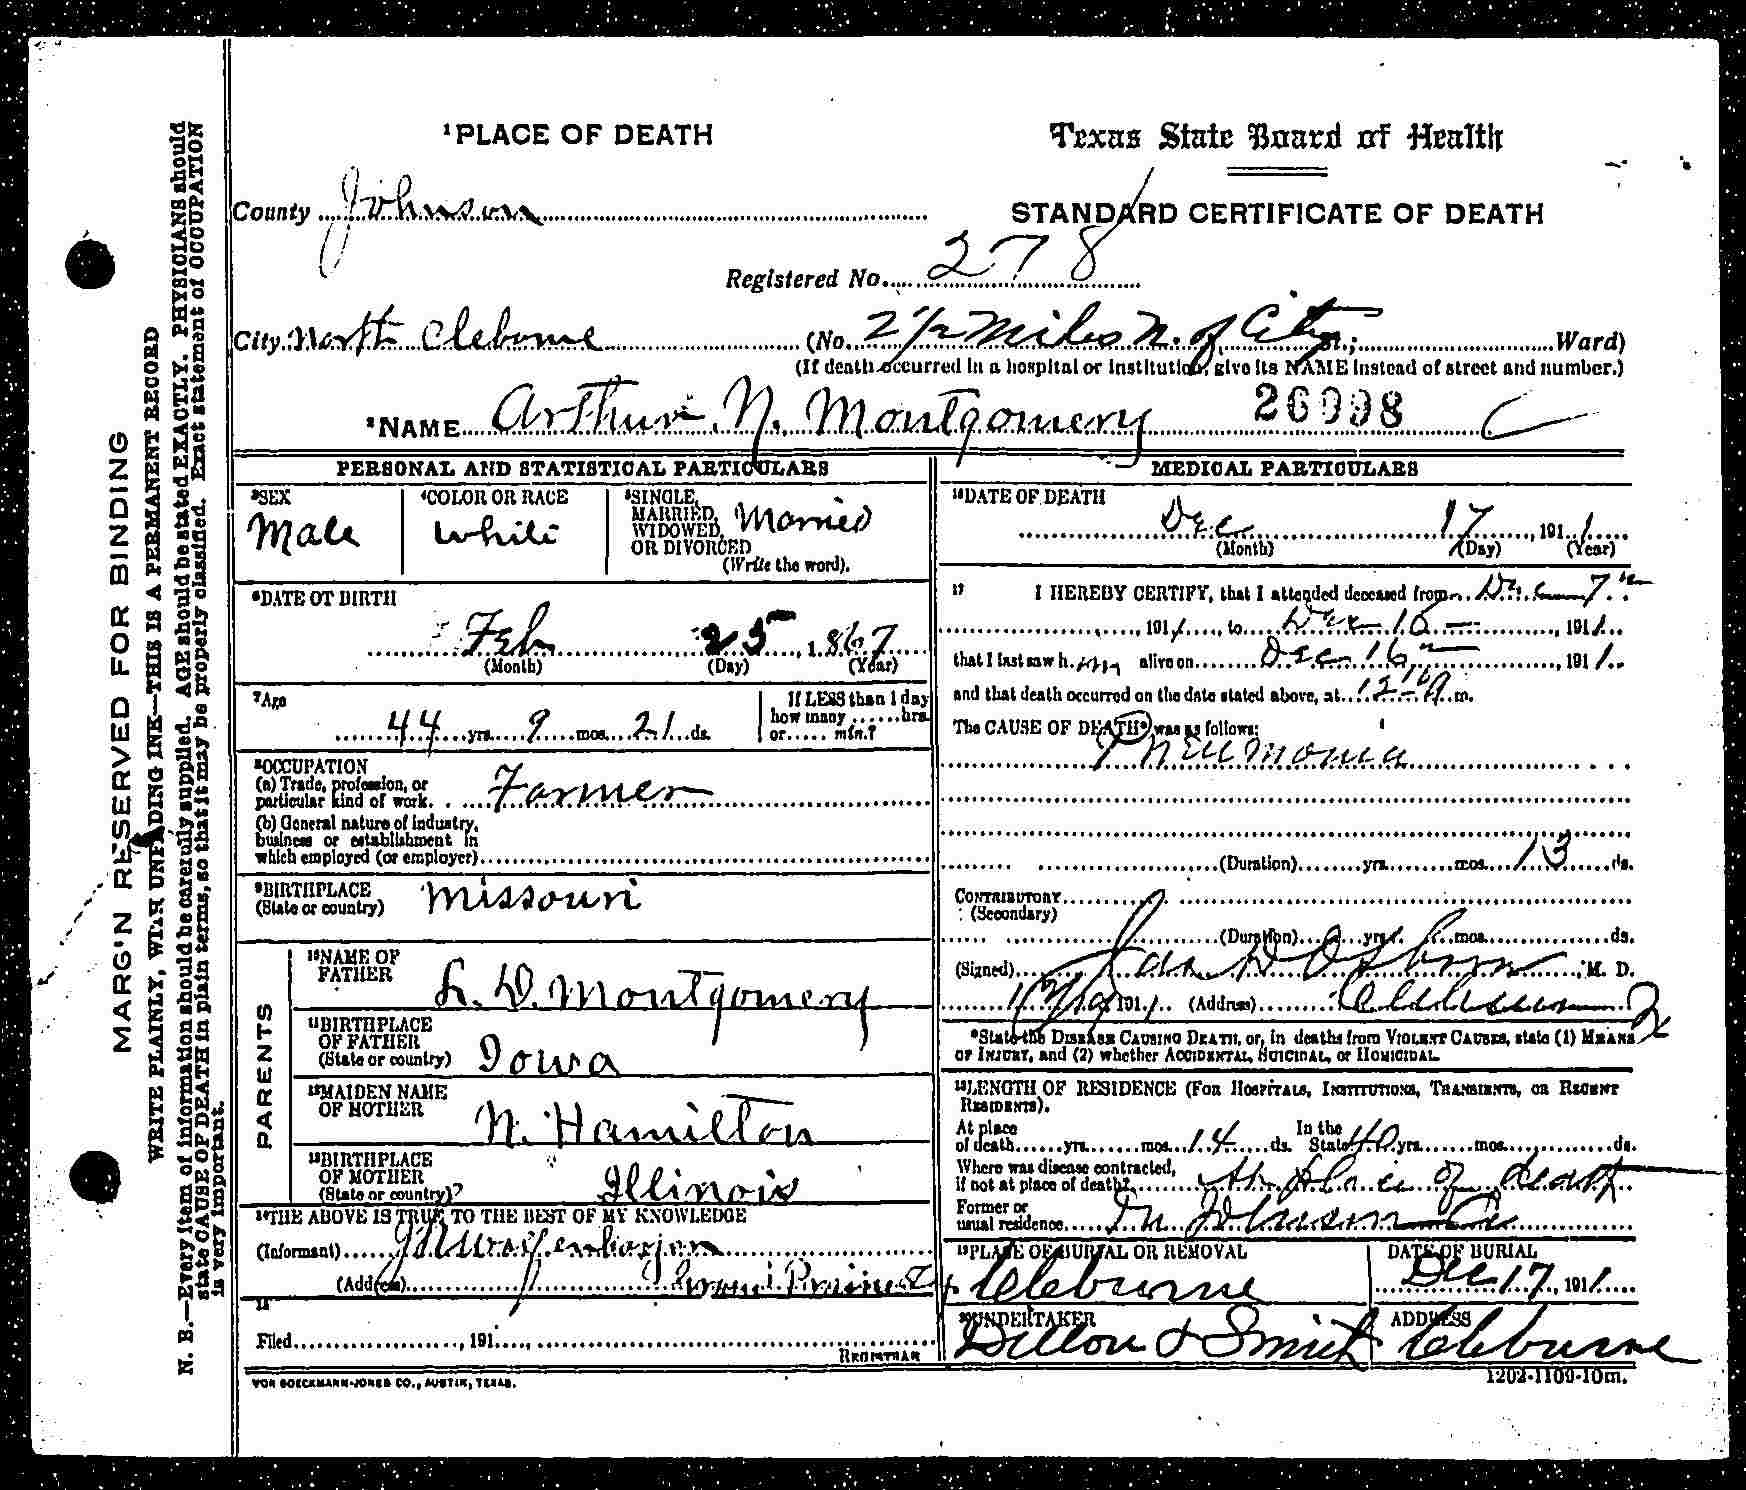 ¹PLACE OF DEATH
Texas State Board of Health
County Johnson
STANDARD CERTIFICATE OF DEATH
Registered No. 278
City North Cleburne (No. 2½ Miles N. of City St.; Ward)
(If death occurred in a hospital or institution, give its NAME instead of street and number.)
²NAME Arthur N. Montgomery 26998
PERSONAL AND STATISTICAL PARTICULARS
³SEX Male
⁴COLOR OR RACE White
⁵SINGLE, MARRIED, WIDOWED, OR DIVORCED Married
(Write the word).
⁶DATE OF BIRTH
Feb 25, 1867
(Month) (Day) (Year)
⁷Age
44 yrs. 9 mos. 21 ds.
If LESS than 1 day
how many ...... hrs.
or ..... min.?
⁸OCCUPATION
(a) Trade, profession, or
particular kind of work. Farmer
(b) General nature of industry,
business or establishment in
which employed (or employer)
⁹BIRTHPLACE
(State or country) Missouri
PARENTS
¹⁰NAME OF
FATHER L. D. Montgomery
¹¹BIRTHPLACE
OF FATHER
(State or country) Iowa
¹²MAIDEN NAME
OF MOTHER N. Hamilton
¹³BIRTHPLACE
OF MOTHER
(State or country) Illinois
¹⁴THE ABOVE IS TRUE TO THE BEST OF MY KNOWLEDGE
(Informant)
(Address) Grand Prairie Tx
¹⁵
Filed , 191
REGISTRAR
VON BOECKMANN-JONES CO., AUSTIN, TEXAS.
MEDICAL PARTICULARS
¹⁶DATE OF DEATH
Dec 17, 1911
(Month) (Day) (Year)
¹⁷ I HEREBY CERTIFY, that I attended deceased from Dec 7th
, 1911, to Dec 16, 1911
that I last saw him alive on Dec 16th, 1911
and that death occurred on the date stated above, at 12 m.
The CAUSE OF DEATH* was as follows:
Pneumonia
(Duration) yrs. mos. 13 ds.
CONTRIBUTORY
(Secondary)
(Duration) yrs. mos. ds.
(Signed) Jas D Osborn, M. D.
1911 (Address) Cleburne Tx
*State the DISEASE CAUSING DEATH, or, in deaths from VIOLENT CAUSES, state (1) MEANS
OF INJURY, and (2) whether ACCIDENTAL, SUICIDAL, or HOMICIDAL.
¹⁸LENGTH OF RESIDENCE (FOR HOSPITALS, INSTITUTIONS, TRANSIENTS, OR RECENT
RESIDENTS).
At place
of death yrs. mos. 14 ds. In the State 40 yrs. mos. ds.
Where was disease contracted,
if not at place of death? At place of death
Former or
usual residence In Johnson Co
¹⁹PLACE OF BURIAL OR REMOVAL
Cleburne
DATE OF BURIAL
Dec 17, 1911
²⁰UNDERTAKER
Dillon & Smith
ADDRESS
Cleburne
1202-1109-10m.
MARGIN RESERVED FOR BINDING
WRITE PLAINLY, WITH UNFADING INK—THIS IS A PERMANENT RECORD
N. B.—Every item of information should be carefully supplied. AGE should be stated EXACTLY. PHYSICIANS should
state CAUSE OF DEATH in plain terms, so that it may be properly classified. Exact statement of OCCUPATION
is very important.